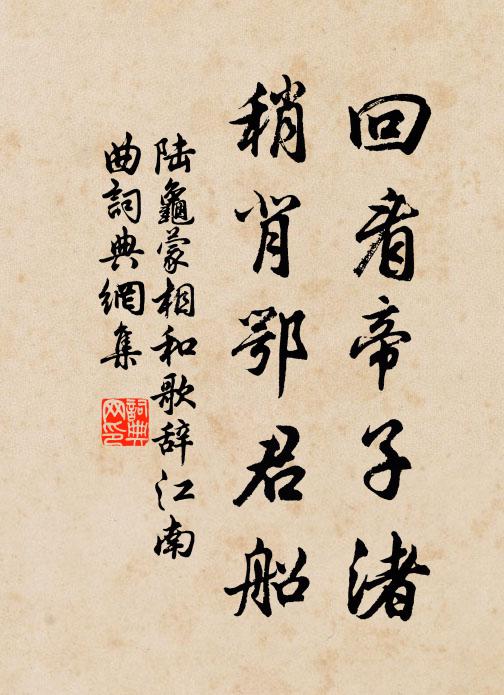 回看帝子渚
稍背鄂君船
陆龜蒙相和歌辞江南
曲詞典網集
詞典网印